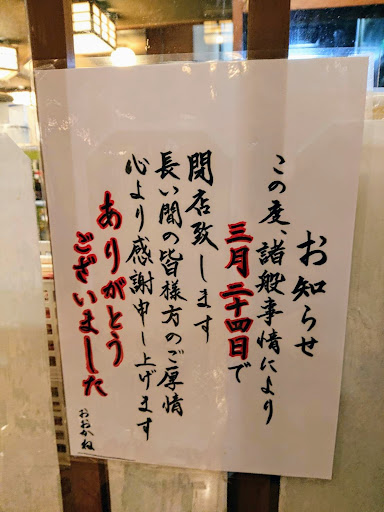 お知らせ
この度、諸般事情により
三月二十四日で
閉店致します
長い間の皆様方のご厚情
心より感謝申し上げます
ありがとう
ございました
おおかね